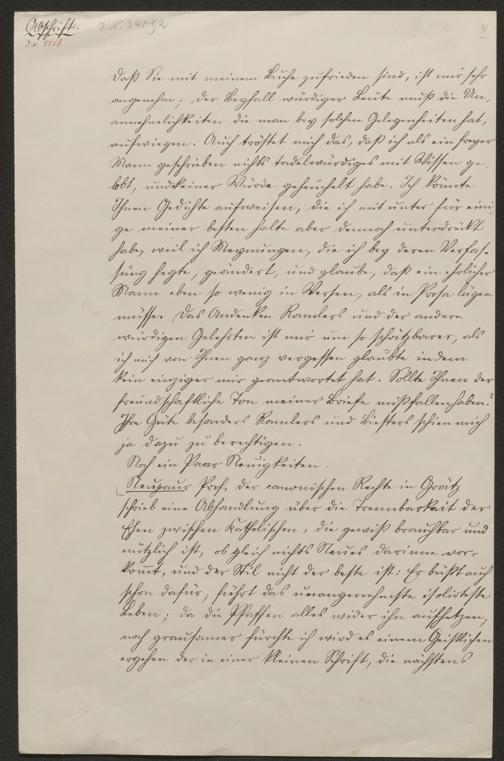 Abschrift.
J.N. 34092
4
Daß Sie mit meinem Buche zufrieden sind, ist mir sehr
angenehm. Der Beyfall würdiger Leute muß die Un¬
annehmlichkeiten die man bey solchen Gelegenheiten hat,
aufwiegen. Auch tröstet mich das, daß ich als ein freyer
Mann geschrieben nichts tadelwürdiges mit Wissen ge¬
lobt, und keiner Würde geheuchelt habe. Ich könnte
Ihnen Gedichte aufweisen, die ich mit unter für eini
ge meiner besten halte aber dennoch unterdrückt
habe, weil ich Meynungen, die ich bey deren Verfas¬
sung hegte, geändert, und glaube, daß ein ehrlicher
Mann eben so wenig in Versen, als in Prosa lügen
müsse. Das Andenken Ramlers und der andern
würdigen Gelehrten ist mir um so schätzbarer, als
ich mich von Ihnen ganz vergessen glaubte indem
kein einziger mir geantwortet hat. Sollte Ihnen der
freundschaftliche Ton meiner Briefe mißfallen haben?
Ihre Güte besonders Ramlers und Biesters schien mich
ja dazu zu berechtigen.
Noch ein Paar Neuigkeiten.
Neupaur Prof. der canonischen Rechte in Graätz
schrieb eine Abhandlung über die Trennbarkeit der
Ehen zwischen Katholischen, die gewiß brauchbar und
nützlich ist, ob gleich nichts Neues darinne vor¬
kommt, und der Stil nicht der beste ist: Er büßt auch
schon dafür; führt das unangenehmste isolirteste
Leben; da die Pfaffen alles wider ihn aufhetzen,
noch grausamer fürchte ich wird es einem Geistlichen
ergehen der in einer kleinen Schrift, die nächstens